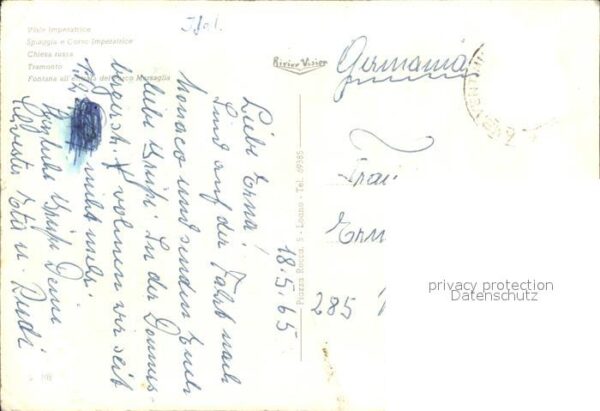 Viale Imperatrice
Spiaggia e Corso Imperatrice
Chiesa russa
Tramonto
Fontana all'entrata del Parco Marsaglia
Ital.
Rivier Vision
Germania
18.5.65
Liebe Erna!
Sind auf der Fahrt nach
Monaco und senden Euch
liebe Grüße. In der Donners-
bergerstr. wohnen wir seit
nicht mehr.
Herzliche Grüße Deine
Silvester Etti u. Rudi
Piazza Rocca, 5 - Loano - Tel. 69385
Frau
Erna
285
privacy protection
Datenschutz